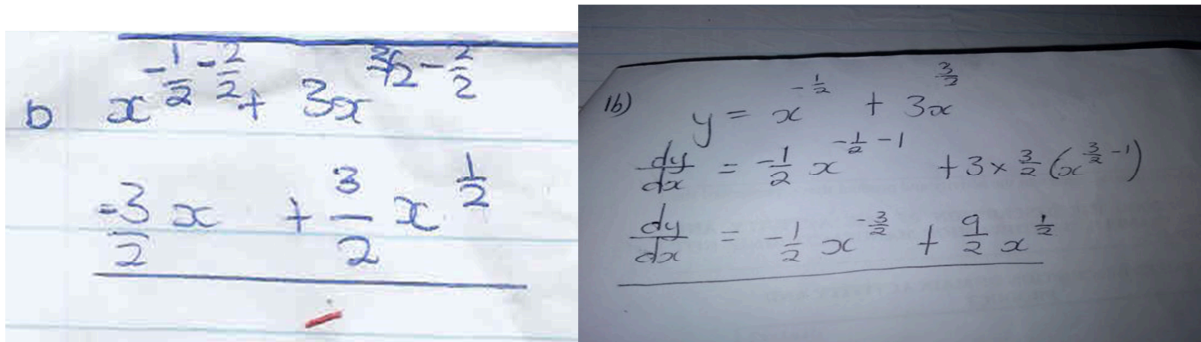 b x^{-1/2 - 2/2} + 3x^{3/2 - 2/2}
-3/2 x + 3/2 x^{1/2}
1b) y = x^{-1/2} + 3x^{3/2}
dy/dx = -1/2 x^{-1/2 - 1} + 3 × 3/2 (x^{3/2 - 1})
dy/dx = -1/2 x^{-3/2} + 9/2 x^{1/2}